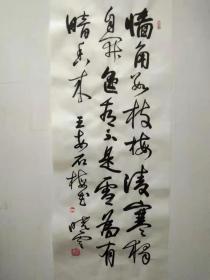 墙角数枝梅凌寒独
自开遥知不是雪为有
暗香来 王安石梅花